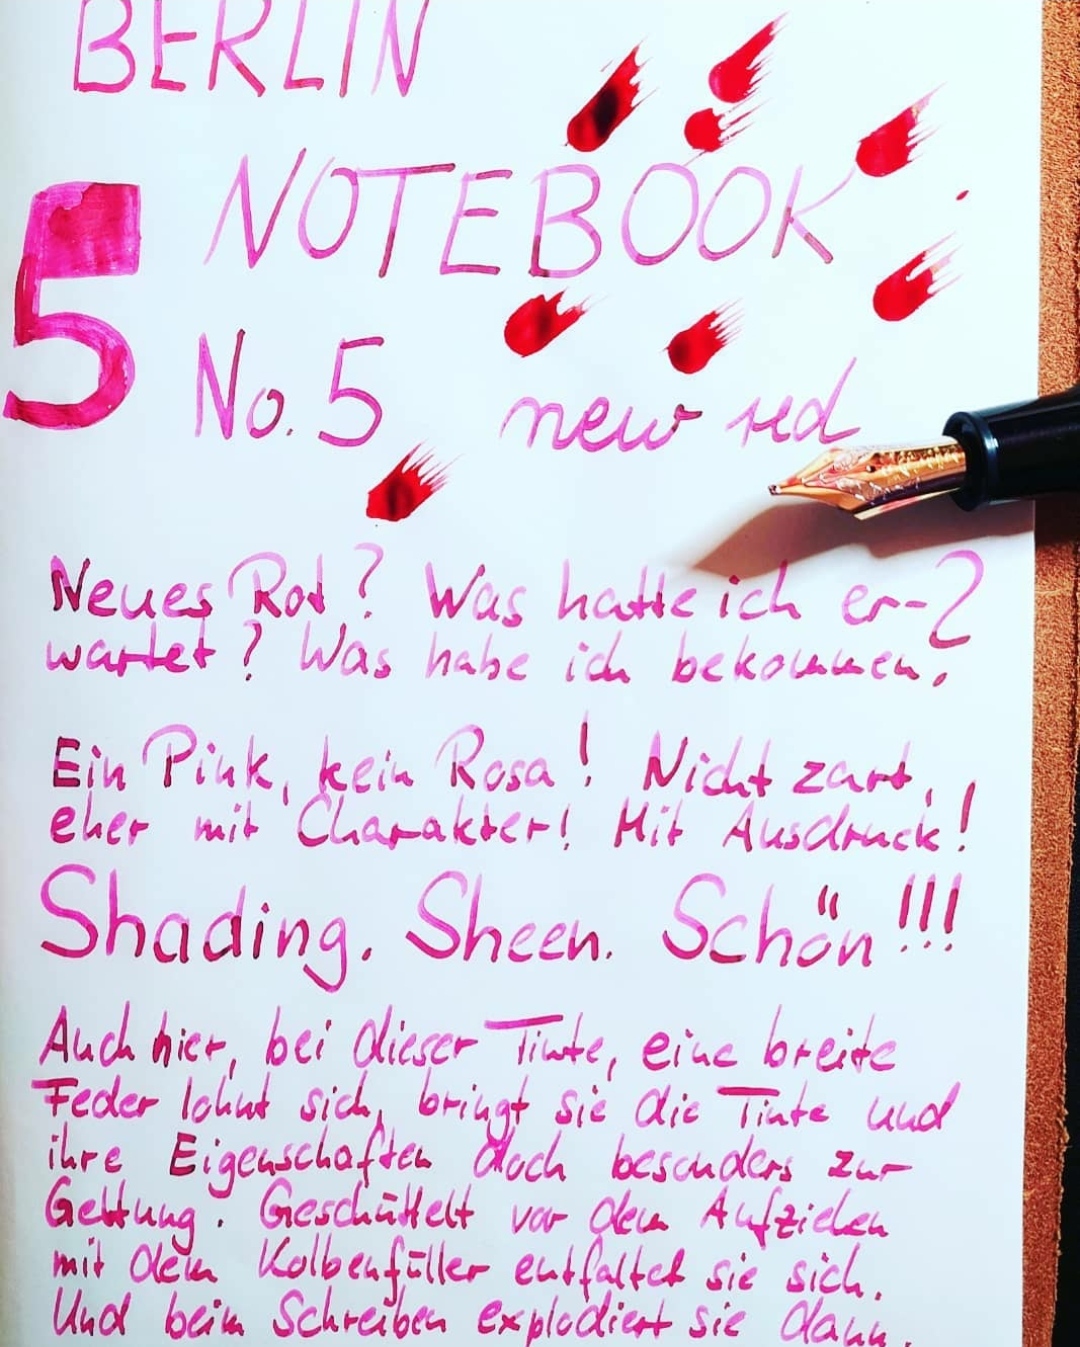 BERLIN
NOTEBOOK
5
No. 5 new red
Neues Rot? Was hatte ich er-
wartet? Was habe ich bekommen?
Ein Pink, kein Rosa! Nicht zart,
eher mit Charakter! Mit Ausdruck!
Shading. Sheen. Schön!!!
Auch hier, bei dieser Tinte, eine breite
Feder lohnt sich, bringt sie die Tinte und
ihre Eigenschaften doch besonders zur
Geltung. Geschüttelt vor dem Aufziehen
mit dem Kolbenfüller entfaltet sie sich.
Und beim Schreiben explodiert sie dann.